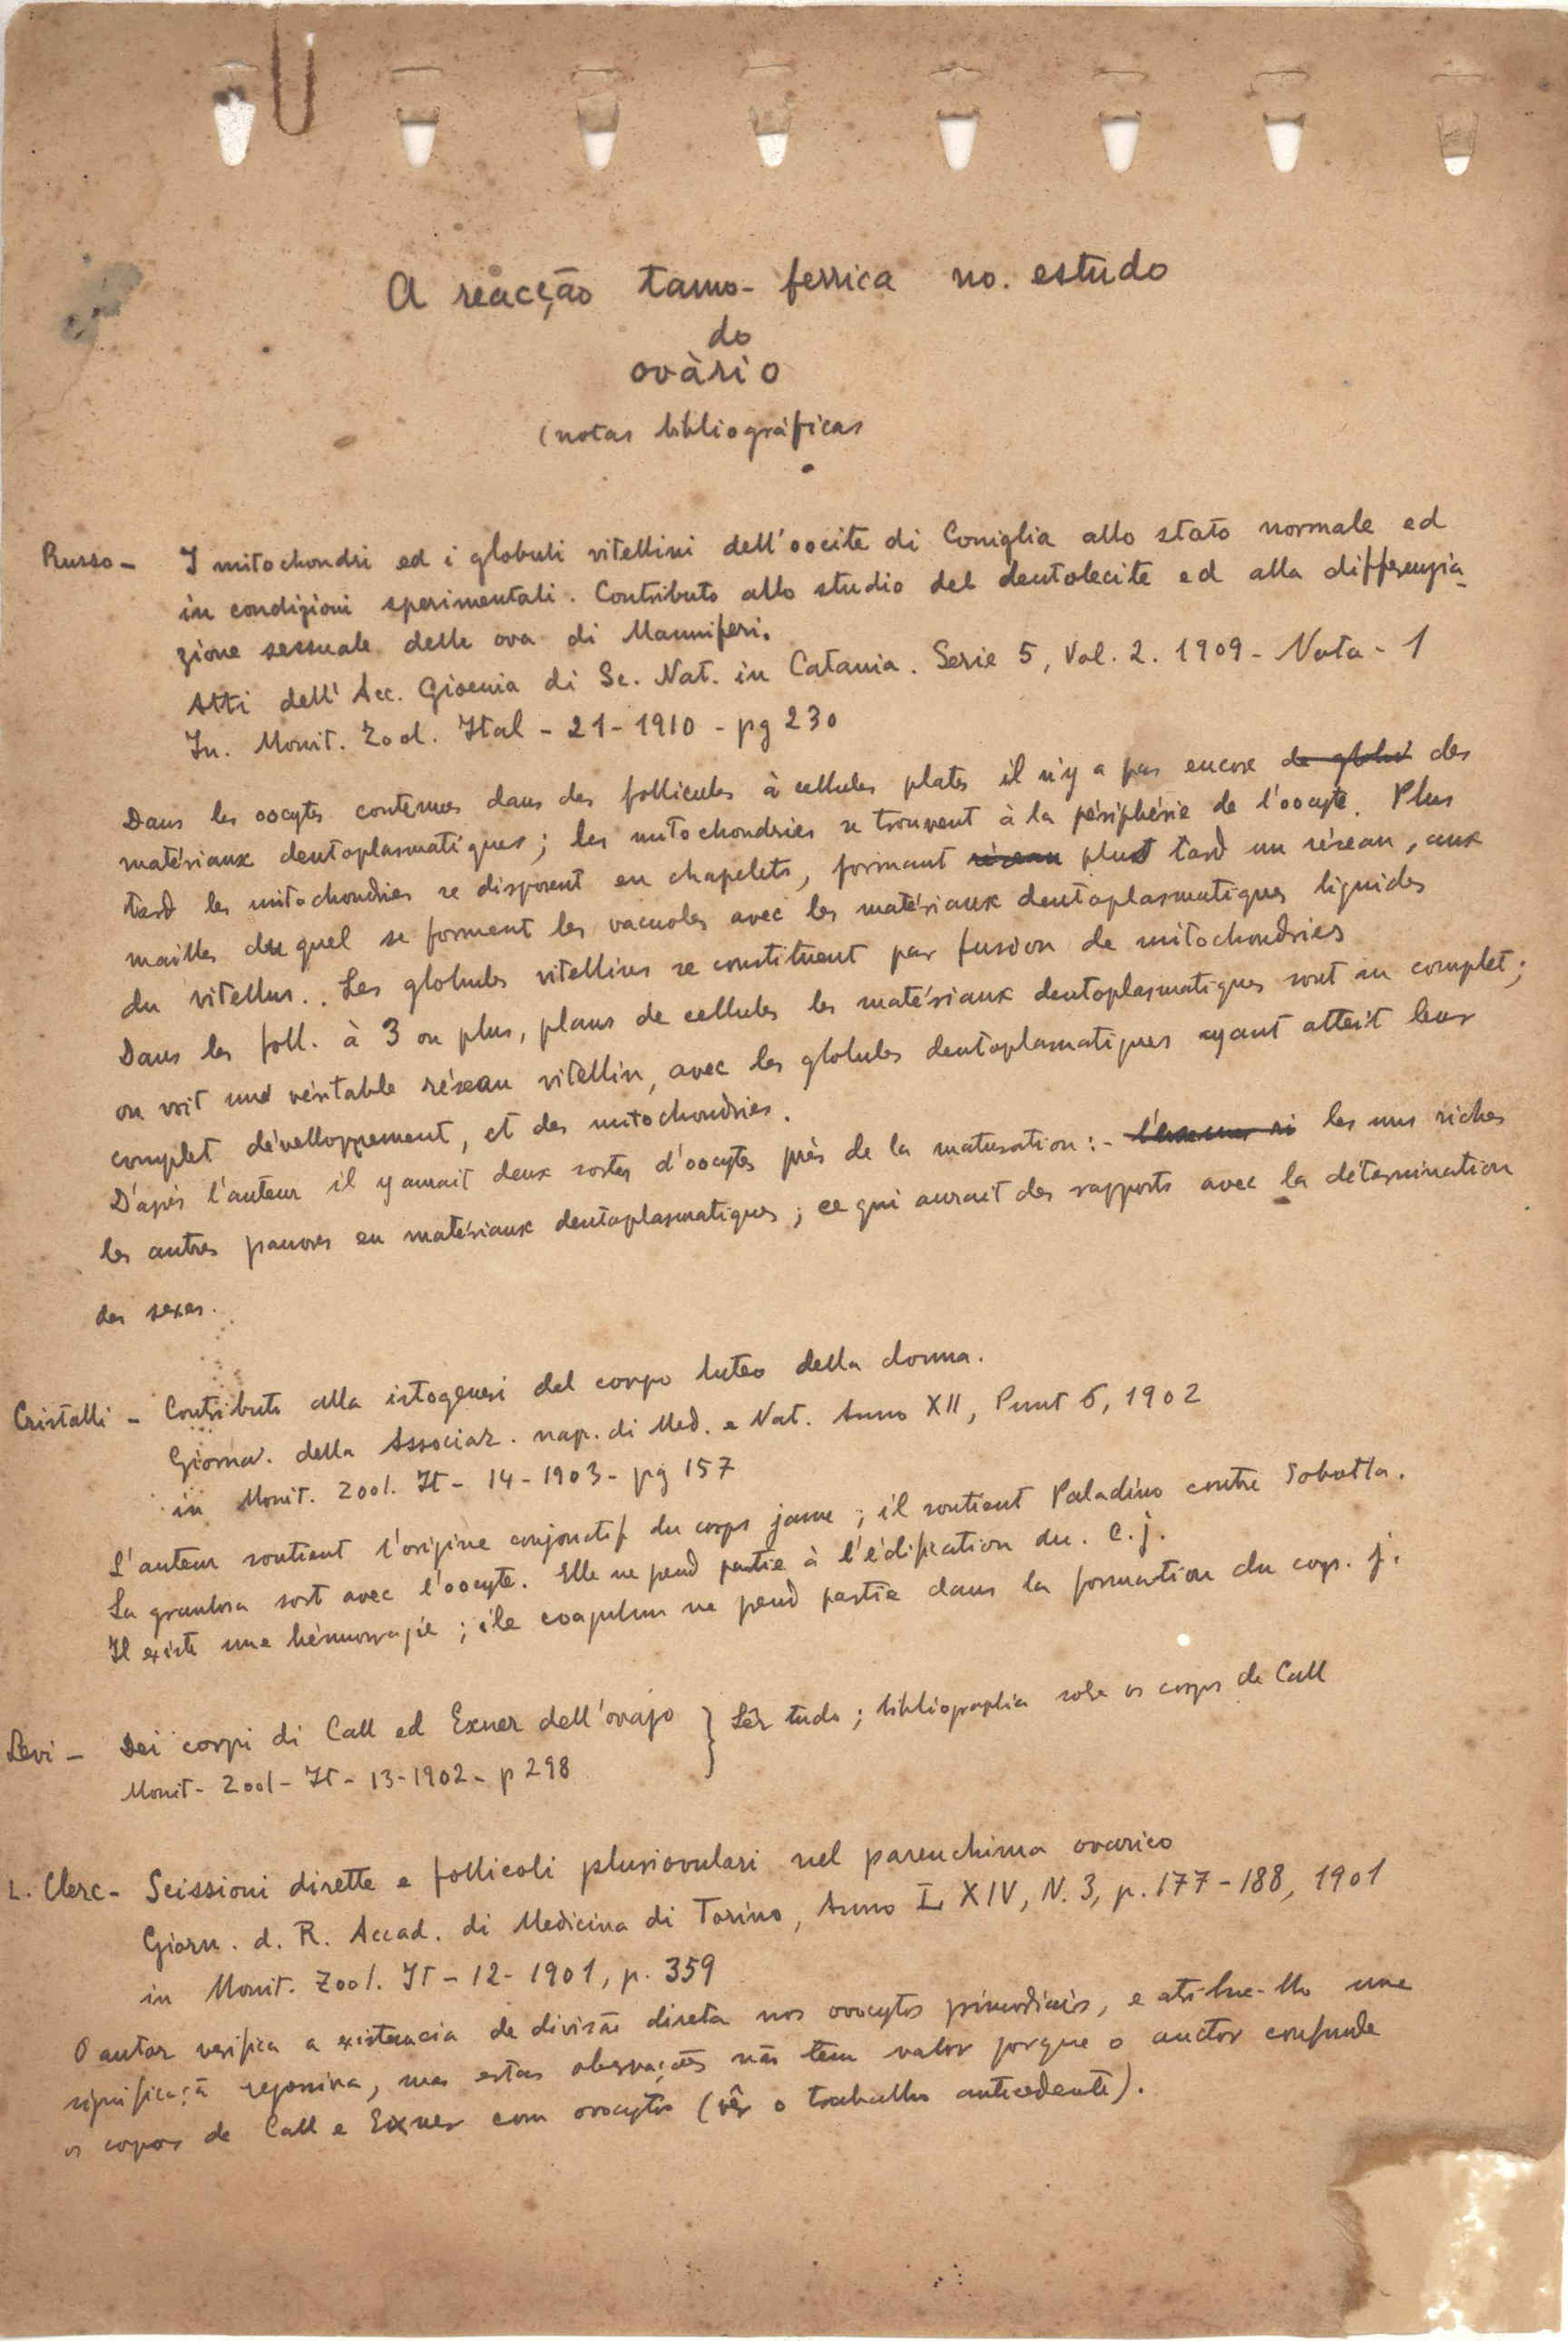 A reacção tano-ferrica no. estudo
do
ovàrio
(notas bibliográficas
Russo - I mitochondri ed i globuli vitellini dell'oocite di Coniglia allo stato normale ed
in condizioni sperimentali. Contributo allo studio del deutolecite ed alla differenzia-
zione sessuale delle ova di Mammiferi.
Atti dell'Acc. Gioenia di Sc. Nat. in Catania. Serie 5, Vol. 2. 1909 - Nota - 1
In. Monit. Zool. Ital - 21 - 1910 - pg 230
Dans les oocytes contenues dans des follicules à cellules plates il n'y a pas encore de globu des
matériaux deutoplasmatiques; les mitochondries se trouvent à la périphérie de l'oocyte. Plus
tard les mitochondries se disposent en chapelets, formant réseau plus tard un réseau, aux
mailles du quel se forment les vacuoles avec les matériaux deutoplasmatiques liquides
du vitellus.. Les globules vitellins se constituent par fusion de mitochondries
Dans les foll. à 3 ou plus, plans de cellules les matériaux deutoplasmatiques sont au complet;
on voit un véritable réseau vitellin, avec les globules deutoplasmatiques ayant atteit leur
complet dévelloppement, et des mitochondries.
D'après l'auteur il y aurait deux sortes d'oocytes près de la maturation: - les uns riches
les autres pauvres en matériaux deutoplasmatiques; ce qui aurait des rapports avec la détermination
des sexes.
Cristalli - Contributo alla istogenesi del corpo luteo della donna.
Giorna. della Associaz. nap. di Med. e Nat. Anno XII, Punt 6, 1902
in Monit. Zool. It - 14 - 1903 - pg 157
L'auteur soutient l'origine conjonctif du corps jaune; il soutient Paladino contre Sobotta.
La granulosa sort avec l'oocyte. Elle ne pend partie à l'édification du. c. j.
Il existe une hémorragie; ile coagulum ne pend partie dans la formation du cops. j.
Levi - Dei corpi di Call ed Exner dell'ovajo } Lêr tudo; bibliographia sobre os corpos de Call
Monit - Zool - It - 13 - 1902 - p 298
L. Clerc - Scissioni dirette e follicoli pluriovulari nel parenchima ovarico
Giorn. d. R. Accad. di Medicina di Torino, Anno LXIV, N. 3, p. 177-188, 1901
in Monit. Zool. It - 12 - 1901, p. 359
O autor verifica a existencia de divisão direta nos ovocytos primordiais, e atribue-lho uma
significaçã, mas estas observações não tem valor porque o auctor confunde
os copos de Call e Exner com ovocytos (vêr o trabalho antecedente).